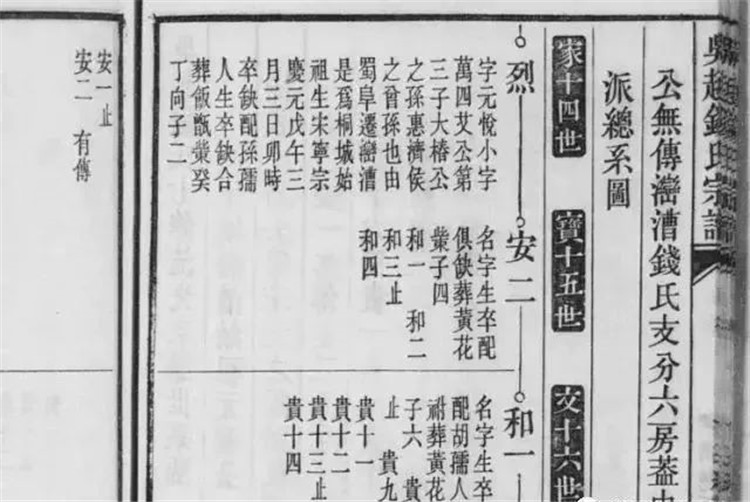 吳越錢氏宗譜
公無傳灣漕錢氏支分六房葢
派總系圖
家十四世
寶十五世
交十六世
烈
字元悅小字
萬四艾公第
三子大椿公
之孫惠濟侯
之曾孫也由
蜀阜遷灣漕
是爲桐城始
祖生宋寧宗
慶元戊午三
月三日卯時
卒缺配孫孺
人生卒缺合
葬飯甑塋癸
丁向子二
安一止
安二 有傳
安二
名字生卒配
俱缺葬黃花
塋子四
和一 和二
和三止
和四
和一
名字生卒
配胡孺人
祔葬黃花
子六 貴九
止
貴十一
貴十二
貴十三止
貴十四